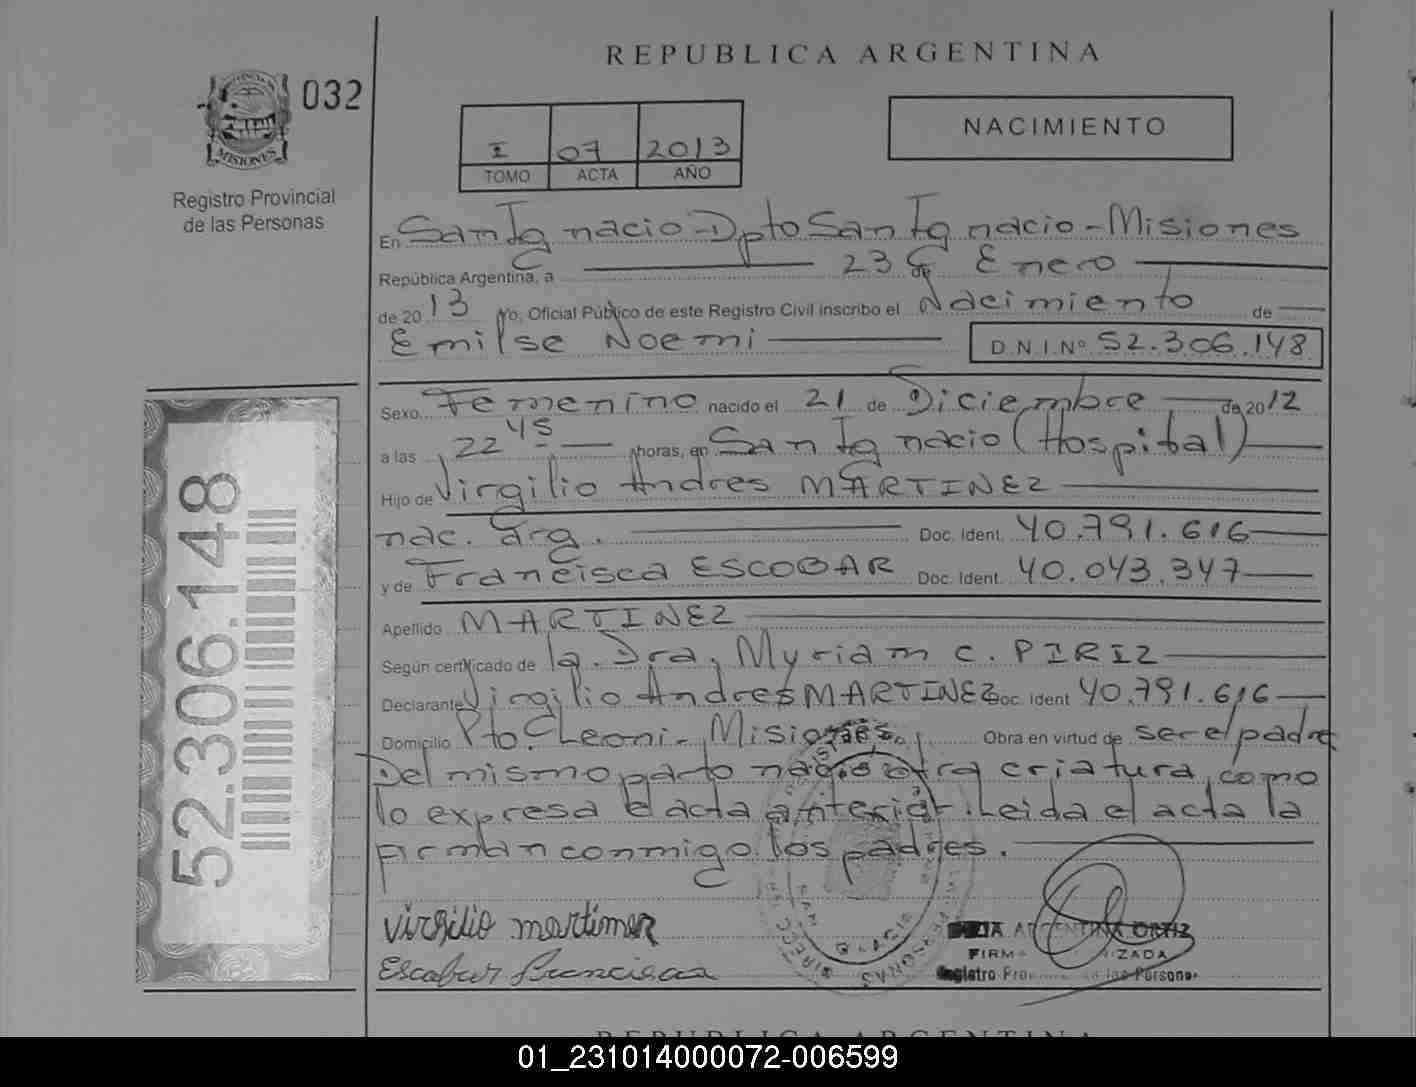 REPUBLICA ARGENTINA
032
MISIONES
Registro Provincial
de las Personas
I 07 2013
TOMO ACTA AÑO
NACIMIENTO
En San Ignacio - Dpto San Ignacio - Misiones
República Argentina, a 23 de Enero
de 2013 Yo, Oficial Público de este Registro Civil inscribo el Nacimiento de
Emilse Noemi D.N.I.Nº 52.306.148
Sexo Femenino nacido el 21 de Diciembre de 2012
a las 22 45 horas, en San Ignacio (Hospital)
Hijo de Virgilio Andres MARTINEZ
nac. arg. Doc. Ident. 40.791.616
y de Francisca ESCOBAR Doc. Ident. 40.043.347
Apellido MARTINEZ
Según certificado de la Dra. Myriam C. PIRIZ
Declarante Virgilio Andres MARTINEZ Doc. Ident 40.791.616
Domicilio Pto. Leoni - Misiones. Obra en virtud de ser el padre
Del mismo parto nacio otra criatura, como
lo expresa el acta anterior. Leida el acta la
firman conmigo los padres.
52.306.148
virgilio martinez
Escobar Francisca
ARGENTINA ORTIZ
REPUBLICA ARGENTINA
01_231014000072-006599